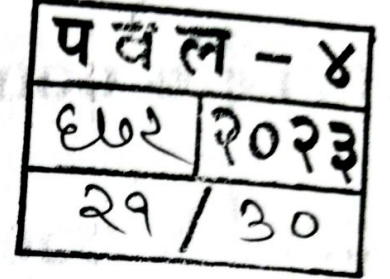 पवल - ४
६७२ २०२३
२१ / ३०